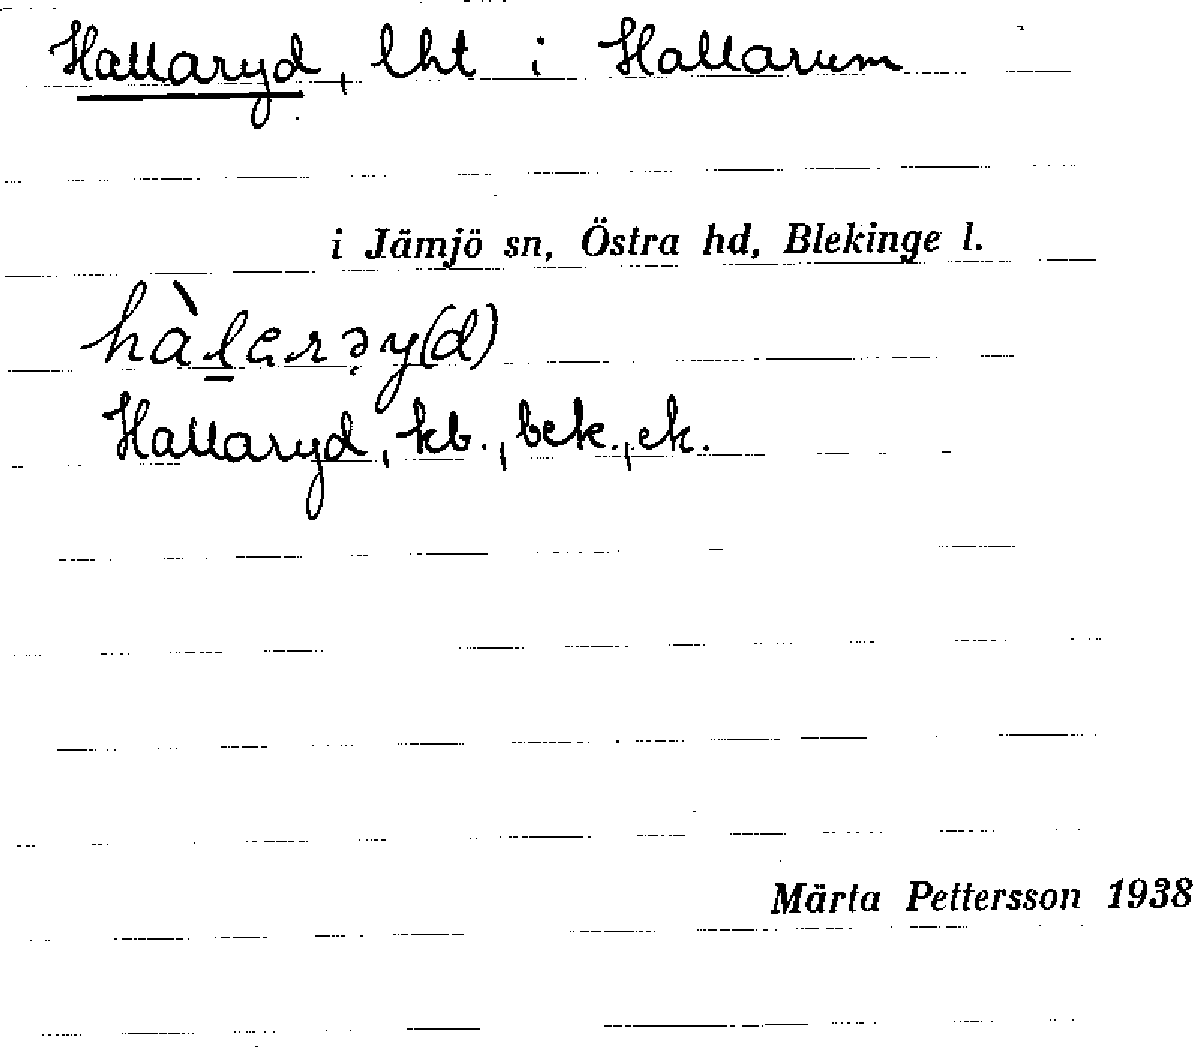 Hallaryd, lht i Hallarum
i Jämjö sn, Östra hd, Blekinge l.
Hallaryd, kb., bek., ek.
Märta Pettersson 1938